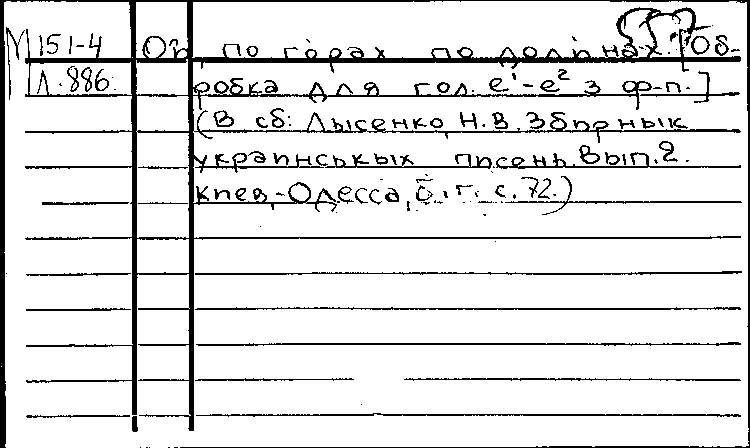 557
М 151-4 Ой, по горах по долинах. [Об-
Л.886. робка для гол. e¹-e² з ф-п.]
(В сб: Лысенко, Н.В. Збирнык
украинськых писень. Вып.2.
Киев,-Одесса, б. г. с. 72.)